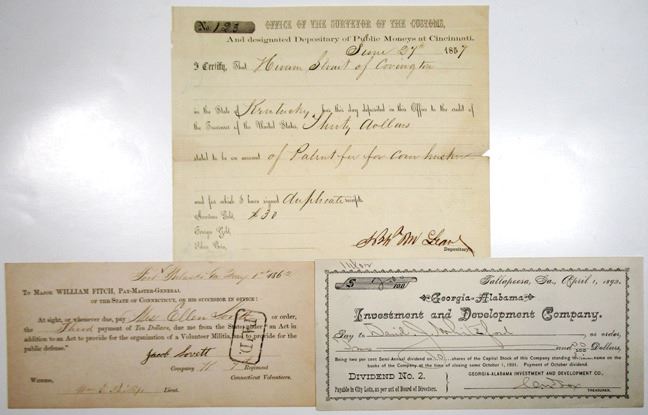 No. 123
OFFICE OF THE SURVEYOR OF THE CUSTOMS,
And designated Depositary of Public Moneys at Cincinnati,
June 27th 1857
I Certify, That Hiram Stuart of Covington
in the State of Kentucky, has this day deposited in this Office to the credit of
the Treasurer of the United States, Thirty Dollars
stated to be on account of Patent fee for Corn husker
and for which I have signed duplicate receipts.
American Gold, $30
Foreign Gold,
Silver Coin,
Depositary.
May 1862
To MAJOR WILLIAM FITCH, PAY-MASTER-GENERAL
OF THE STATE OF CONNECTICUT, OR HIS SUCCESSOR IN OFFICE:
At sight, or whenever due, pay Mrs Ellen Lovett or order,
the Third payment of Ten Dollars, due me from the State under "an Act in
addition to an Act to provide for the organization of a Volunteer Militia, and to provide for the
public defense."
Jacob Lovett
Company H 7 Regiment
Connecticut Volunteers.
Witness,
Lieut.
PAID
$ 100
Tallapoosa, Ga., April 1, 1892.
Georgia-Alabama
Investment and Development Company.
Pay to David J or order,
00 100 Dollars,
Being two per cent Semi-Annual dividend on shares of the Capital Stock of this Company standing in name on the
books of the Company at the time of closing same October 1, 1891. Payment of October dividend.
DIVIDEND No. 2.
GEORGIA-ALABAMA INVESTMENT AND DEVELOPMENT CO.,
Payable in City Lots, as per act of Board of Directors.
TREASURER.